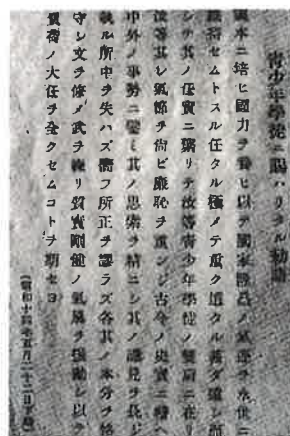 青少年學徒ニ賜ハリタル勅語
國本ニ培ヒ國力ヲ養ヒ以テ國家隆昌ノ氣運ヲ永世ニ
維持セムトスル任タル極メテ重ク道タル甚ダ遠シ而
シテ其ノ任實ニ繋リテ汝等青少年學徒ノ雙肩ニ在リ
汝等其レ氣節ヲ尚ビ廉恥ヲ重ンジ古今ノ史實ニ稽ヘ
中外ノ事勢ニ鑒ミ其ノ思索ヲ精ニシ其ノ識見ヲ長ジ
執ル所中ヲ失ハズ嚮フ所正ヲ謬ラズ各其ノ本分ヲ恪
守シ文ヲ修メ武ヲ練リ質實剛健ノ氣風ヲ振勵シ以テ
負荷ノ大任ヲ全クセムコトヲ期セヨ
(昭和十四年五月二十二日下賜)